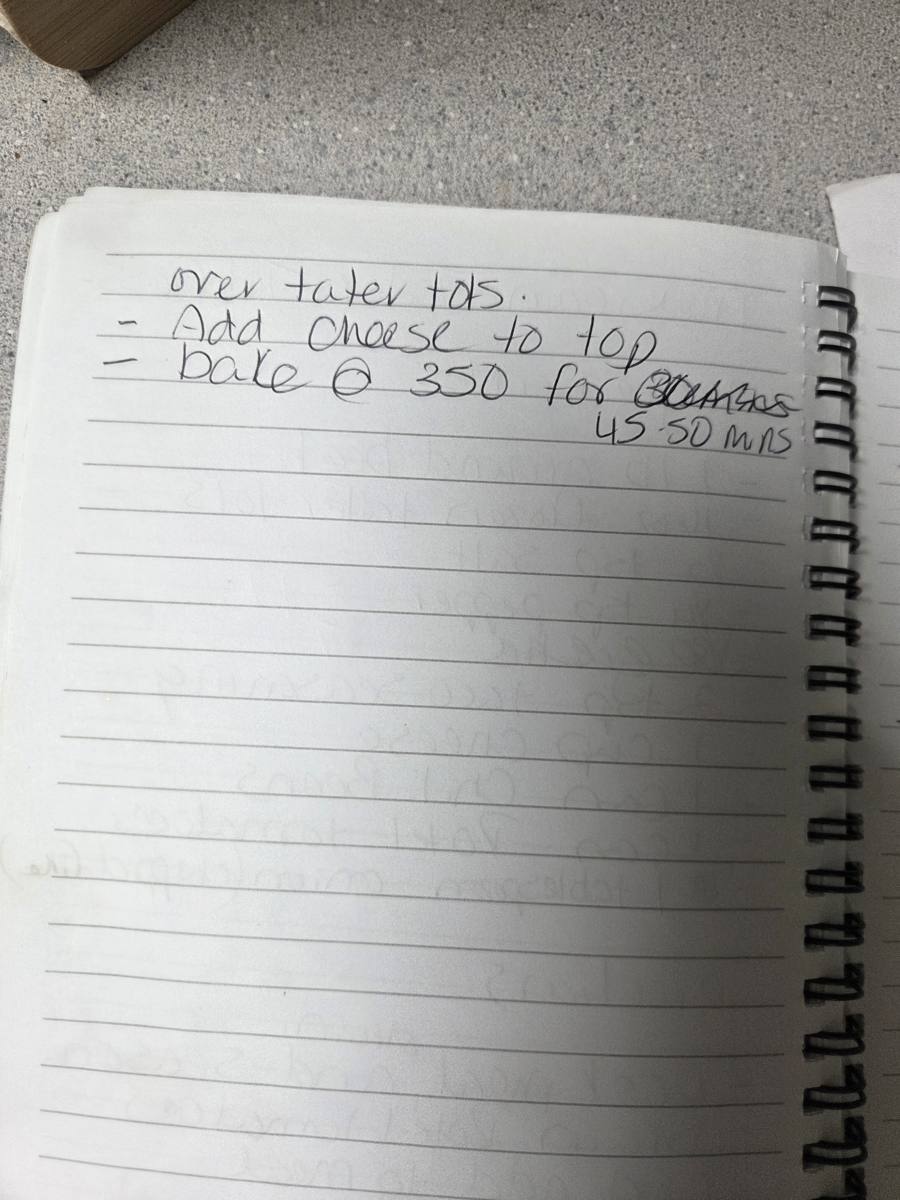 over tater tots.
- Add cheese to top
- bake @ 350 for
45-50 mns